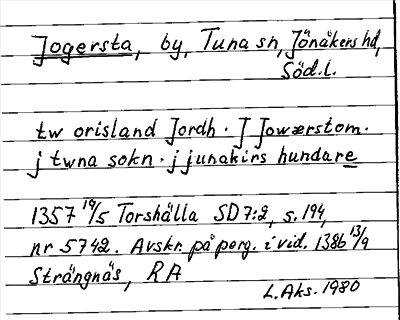 Jogersta, by, Tuna sn, Jönåkers hd,
Söd.l.
tw orisland Jordh. J Jowærstom.
j twna sokn. j junakirs hundare
1357 19/5 Torshälla SD 7:2, s. 194,
nr 5742. Avskr. på perg. i vid. 1386 13/9
Strängnäs, RA
L. Aks. 1980